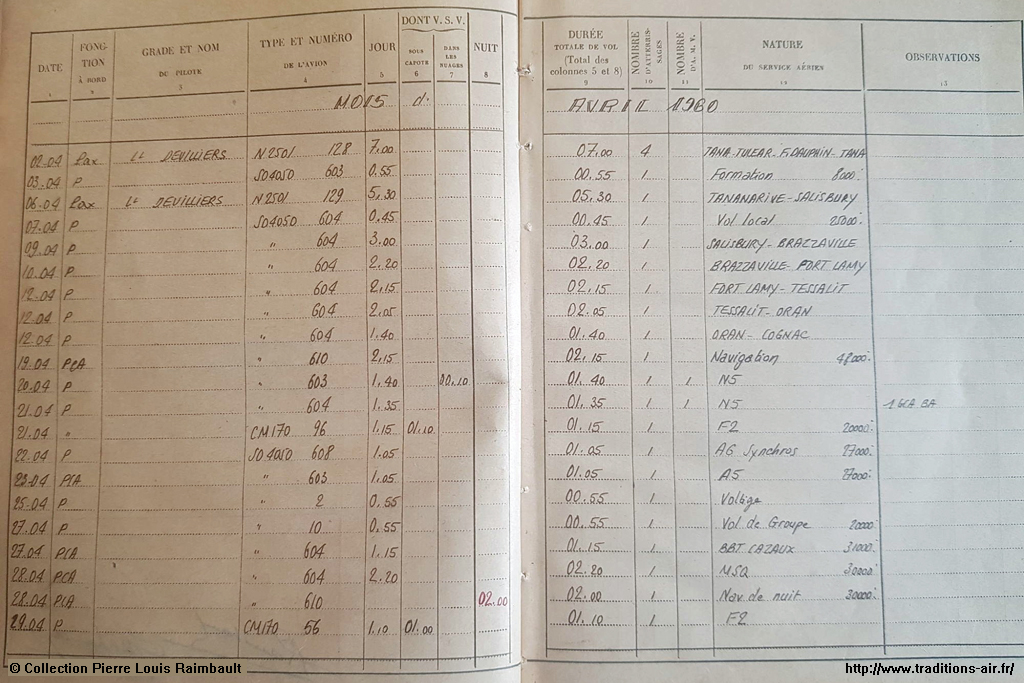 DATE FONCTION À BORD GRADE ET NOM DU PILOTE TYPE ET NUMÉRO DE L'AVION JOUR DONT V. S. V. SOUS CAPOTE DANS LES NUAGES NUIT DURÉE TOTALE DE VOL (Total des colonnes 5 et 8) NOMBRE D'ATTERRISSAGES NOMBRE D'A. M. V. NATURE DU SERVICE AÉRIEN OBSERVATIONS
1 2 3 4 5 6 7 8 9 10 11 12 13
MOIS d' AVRIL 1960
02.04 Pax Lt DEVILLIERS N2501 128 7.00 07.00 4 TANA-TULEAR-F.DAUPHIN-TANA
03.04 P SO4050 603 0.55 00.55 1 Formation 8000'
06.04 Pax Lt DEVILLIERS N2501 129 5.30 05.30 1 TANANARIVE-SALISBURY
07.04 P SO4050 604 0.45 00.45 1 Vol local 25000'
09.04 P " 604 3.00 03.00 1 SALISBURY-BRAZZAVILLE
10.04 P " 604 2.20 02.20 1 BRAZZAVILLE-FORT LAMY
12.04 P " 604 2.15 02.15 1 FORT LAMY-TESSALIT
12.04 P " 604 2.05 02.05 1 TESSALIT-ORAN
12.04 P " 604 1.40 01.40 1 ORAN-COGNAC
19.04 PCA " 610 2.15 02.15 1 Navigation 48000'
20.04 P " 603 1.40 00.10 01.40 1 1 N5
21.04 P " 604 1.35 01.35 1 1 N5 1 GCA BA
21.04 " CM170 96 1.15 01.10 01.15 1 F2 20000'
22.04 P SO4050 608 1.05 01.05 1 A6 Synchros 27000'
23.04 PCA " 603 1.05 01.05 1 A5 27000'
25.04 P " 2 0.55 00.55 1 Voltige
27.04 P " 10 0.55 00.55 1 Vol de Groupe 20000'
27.04 PCA " 604 1.15 01.15 1 BBT CAZAUX 31000'
28.04 PCA " 604 2.20 02.20 1 MSQ 30000'
28.04 PCA " 610 02.00 02.00 1 Nav. de nuit 30000'
29.04 P CM170 56 1.10 01.00 01.10 1 F2
© Collection Pierre Louis Raimbault http://www.traditions-air.fr/